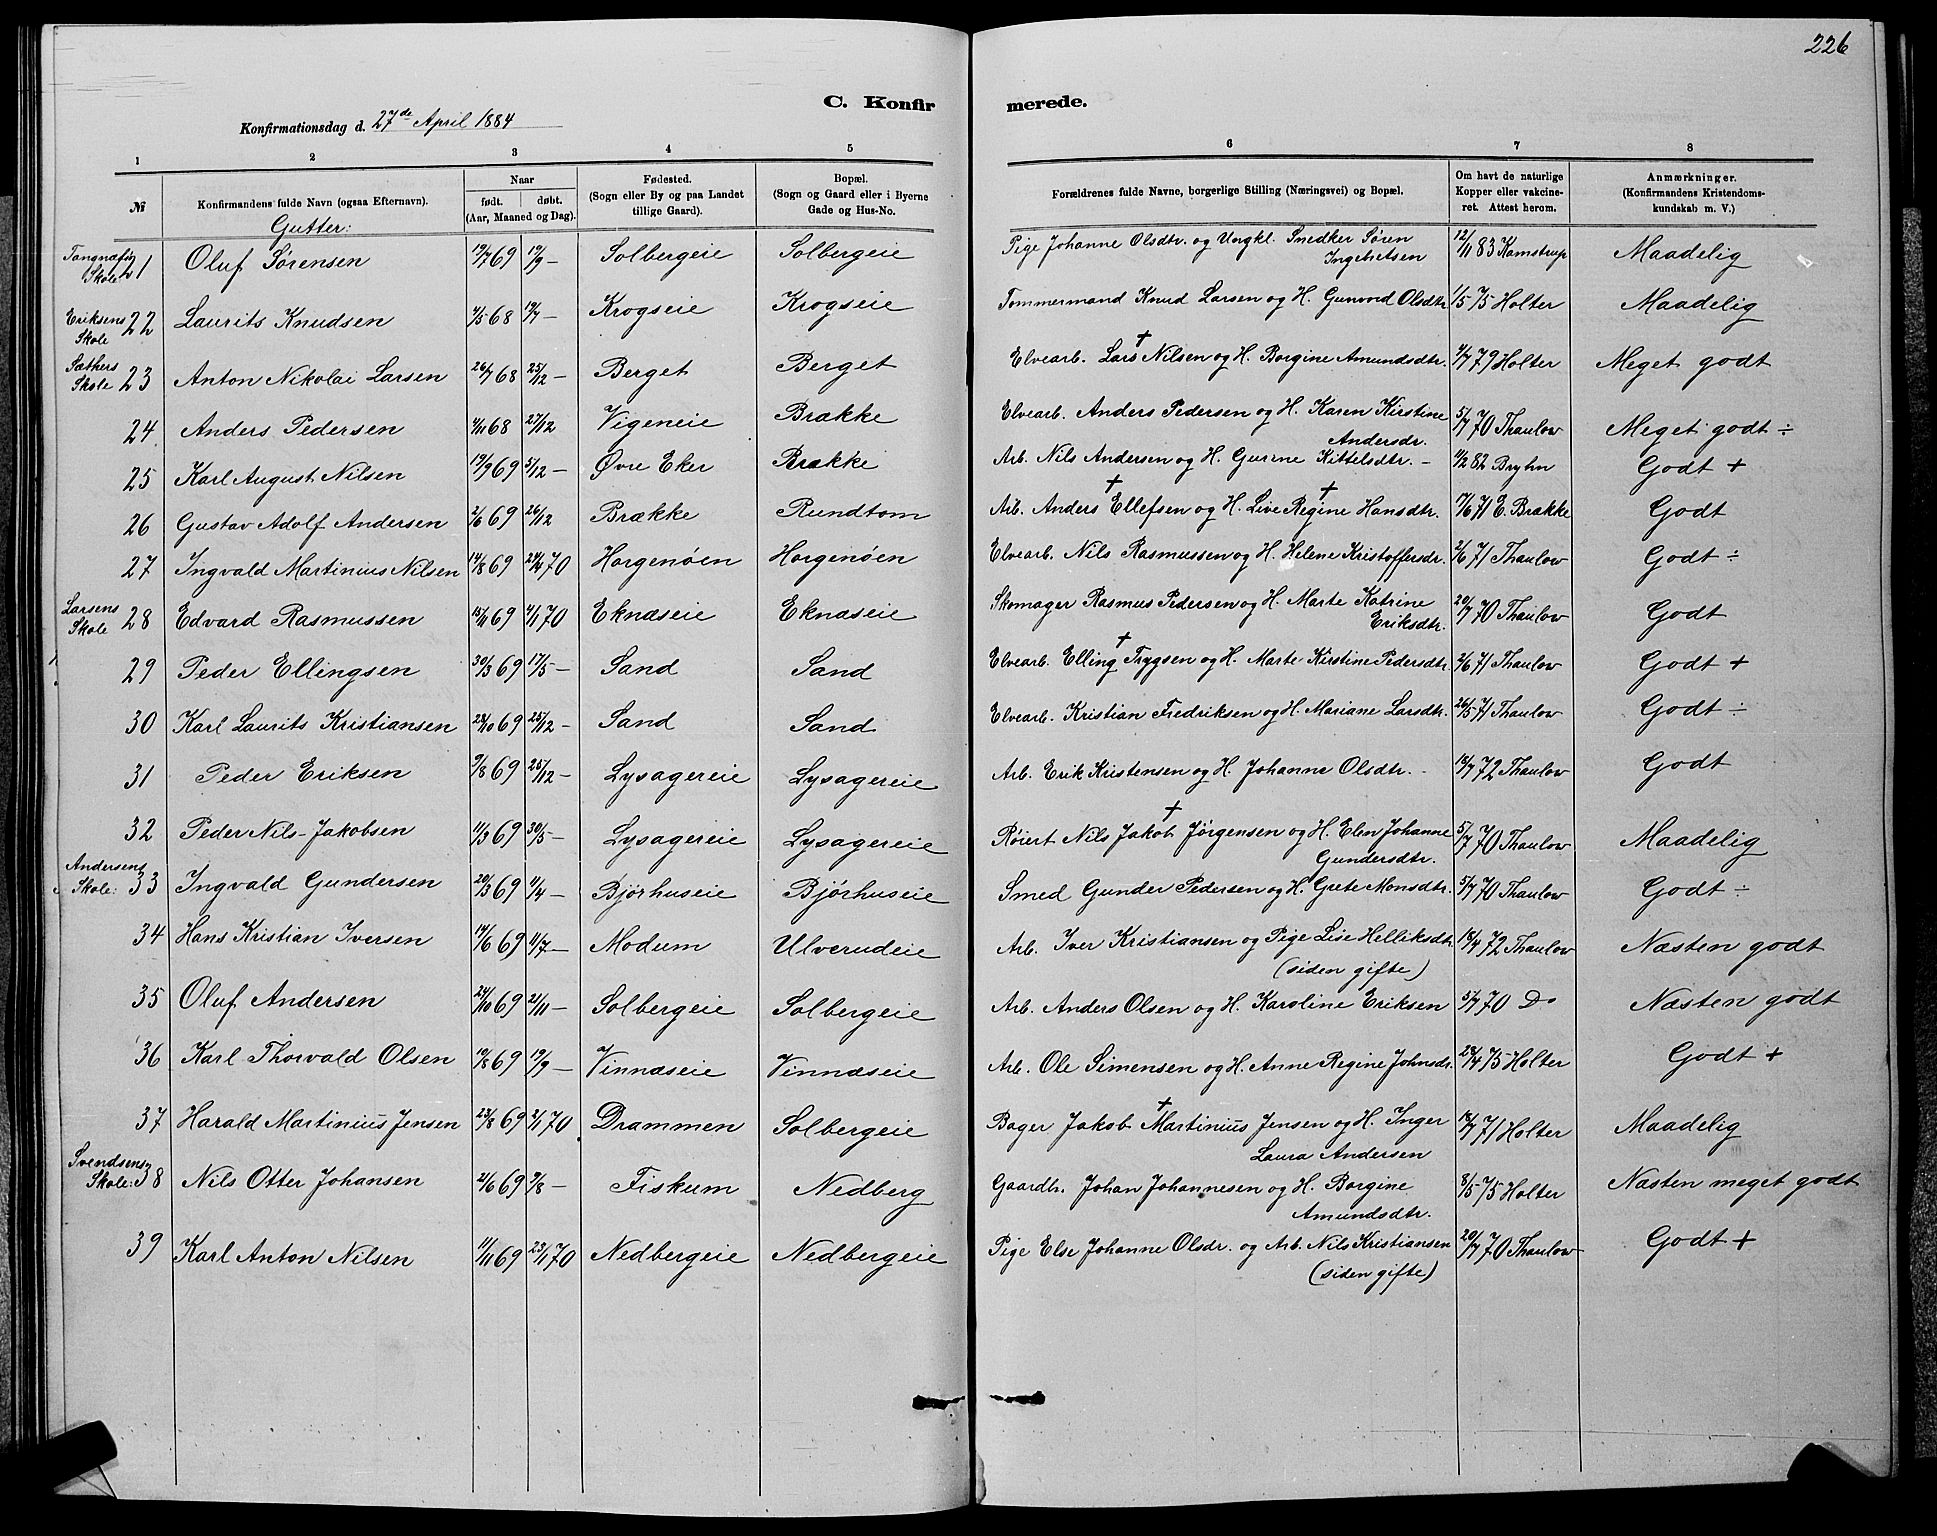 226
C. Konfirmerede.
Konfirmationsdag d. 27de April 1884
1 2 3 4 5 6 7 8
№ Konfirmandens fulde Navn (ogsaa Efternavn). Naar født. døbt. (Aar, Maaned og Dag). Fødested. (Sogn eller By og paa Landet tillige Gaard). Bopæl. (Sogn og Gaard eller i Byerne Gade og Hus-No. Forældrenes fulde Navne, borgerlige Stilling (Næringsvei) og Bopæl. Om havt de naturlige Kopper eller vakcineret. Attest herom. Anmærkninger. (Konfirmandens Kristendomskundskab m. V.)
Gutter:
Skole 21 Oluf Sørensen 19/7 69 19/9 – Solbergeie Solbergeie Pige Johanne Olsdtr. og Ungkl. Snedker Søren 12/11 83 Kamstrup Maadelig
Eriksens Skole 22 Laurits Knudsen 4/5 68 19/7 – Krogseie Krogseie Tømmermand Knud Larsen og H. Gunvord Olsdtr 1/5 75 Holter Maadelig
Sæthers Skole 23 Anton Nikolai Larsen 26/7 68 25/12 – Berget Berget Elvearb. Lars † Nilsen og H. Borgine Amundsdtr. 4/7 79 Holter Meget godt
24 Anders Pedersen 4/11 68 27/12 Vigeneie Brække Elvearb. Anders Pedersen og H. Karen Kirstine Andersdr. 5/7 70 Thaulow Meget godt ÷
25 Karl August Nilsen 19/9 69 5/12 – Øvre Eker Brække Arb. Nils Andersen og H. Gurine Kittelsdtr. – 11/2 82 Bryhn Godt +
26 Gustav Adolf Andersen 2/6 69 26/12 Brække Rundtom Arb. Anders † Ellefsen og H. Live Regine † Hansdtr. 17/6 71 E. Brække Godt
27 Ingvald Martinius Nilsen 14/8 69 24/4 70 Horgenöen Horgenöen Elvearb. Nils Rasmussen og H. Helene Kristoffersdr. 2/6 71 Thaulow Godt ÷
Larsens Skole 28 Edvard Rasmussen 15/11 69 4/1 70 Eknæseie Eknæseie Skomager Rasmus Pedersen og H. Marte Katrine Eriksdtr. 20/7 70 Thaulow Godt
29 Peder Ellingsen 30/3 69 17/5 – Sand Sand Elvearb. Elling † Trygsen og H. Marte Kirstine Pedersdtr. 2/6 71 Thaulow Godt +
30 Karl Laurits Kristiansen 28/10 69 25/12 – Sand Sand Elvearb. Kristian Fredriksen og H. Mariane Larsdtr. 26/5 71 Thaulow Godt ÷
31 Peder Eriksen 9/8 69 25/12 – Lysagereie Lysagereie Arb. Erik Kristensen og H. Johanne Olsdtr. – 18/7 72 Thaulow Godt
32 Peder Nils Jakobsen 11/3 69 30/5 – Lysagereie Lysagereie Røiert Nils Jakob † Jørgensen og H. Elen Johanne Gundersdtr. 5/7 70 Thaulow Maadelig
Andersens Skole: 33 Ingvald Gundersen 20/3 69 11/4 – Bjørhuseie Bjørhuseie Smed Gunder Pedersen og H. Grete Monsdtr. 5/7 70 Thaulow Godt ÷
34 Hans Kristian Iversen 14/6 69 11/7 – Modum Ulverudeie Arb. Iver Kristiansen og Pige Lise Helliksdtr (siden gifte) 18/4 72 Thaulow Næsten godt
35 Oluf Andersen 24/10 69 21/11 – Solbergeie Solbergeie Arb. Anders Olsen og H. Karoline Eriksen 5/7 70 Do Næsten godt
36 Karl Thorvald Olsen 19/8 69 19/9 – Vinnæseie Vinnæseie Arb. Ole Simensen og H. Anne Regine Johnsdr. 28/4 75 Holter Godt +
37 Harald Martinius Jensen 23/8 69 2/1 70 Drammen Solbergeie Bager Jakob † Martinius Jensen og H. Inger Laura Andersen 18/7 71 Holter Maadelig
Svendsens Skole: 38 Nils Otter Johansen 2/6 69 9/8 – Fiskum Nedberg Gaardb. Johan Johannesen og H. Borgine Amundsdtr. 8/5 75 Holter Næsten meget godt
39 Karl Anton Nilsen 11/11 69 23/1 70 Nedbergeie Nedbergeie Pige Else Johanne Olsdr. og Arb. Nils Kristiansen (siden gifte) 20/7 70 Thaulow Godt +